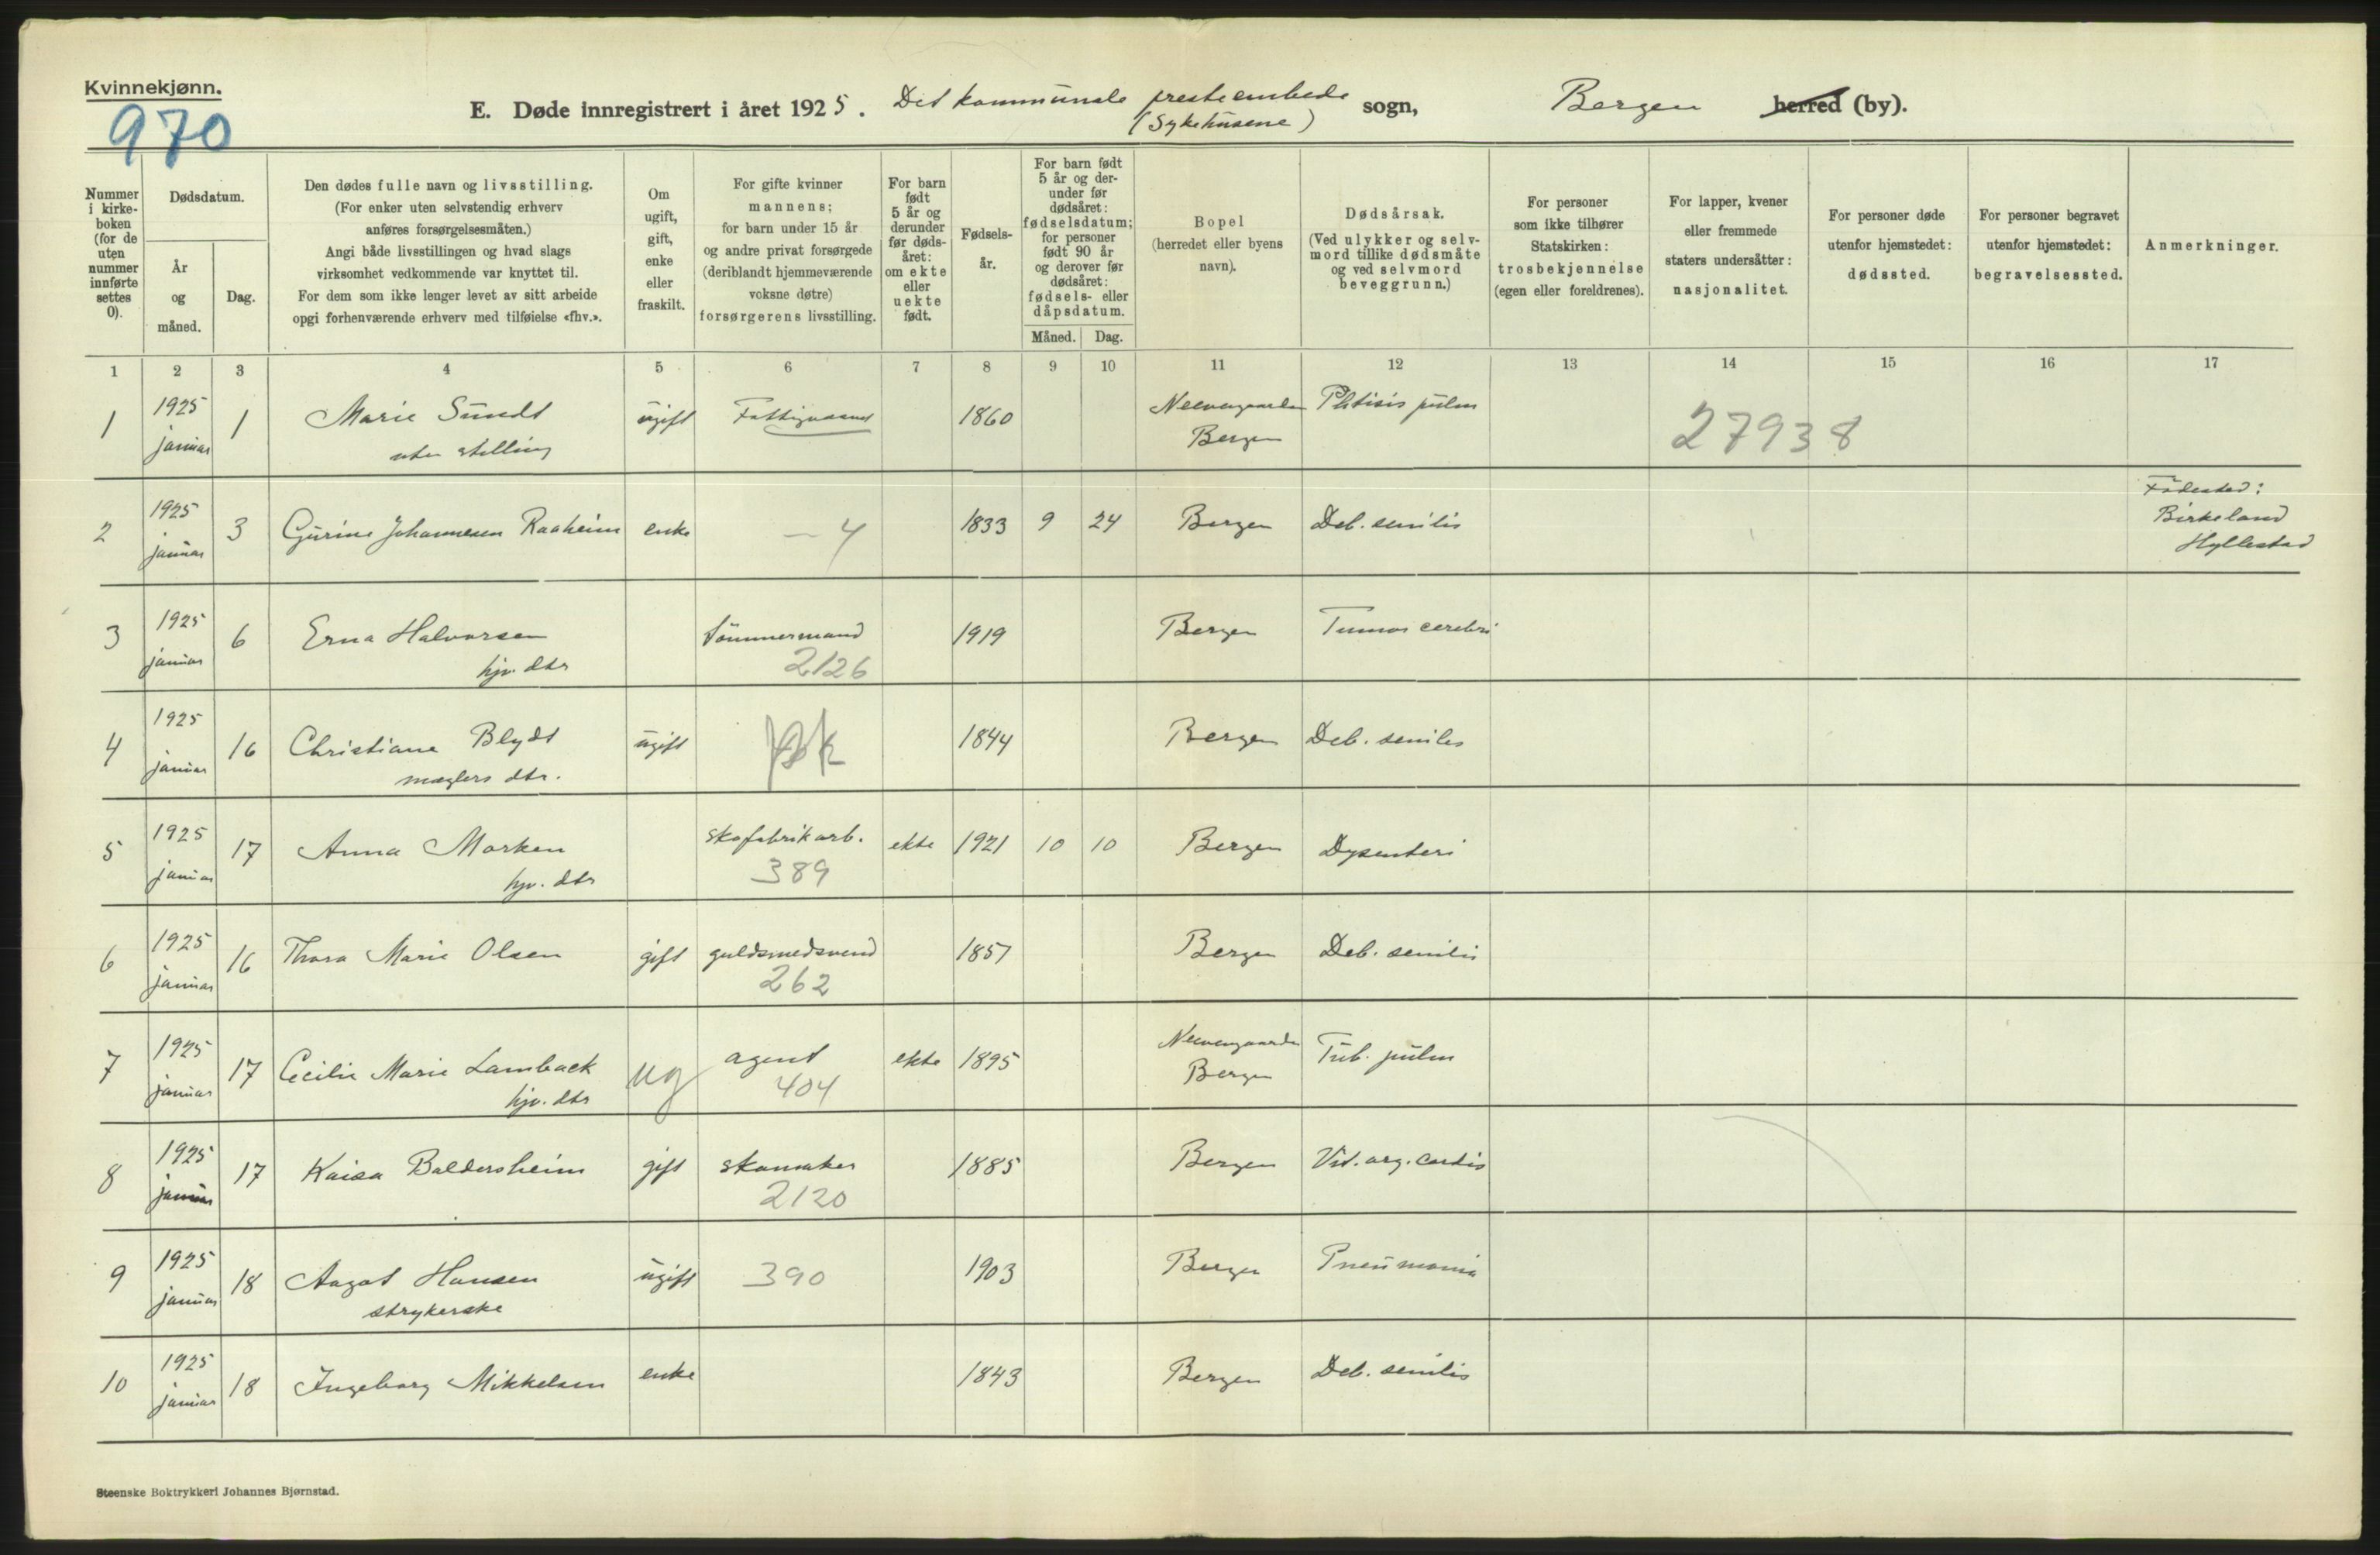 Kvinnekjønn.
970
E. Døde innregistrert i året 1925. Det kommunale presteembede (Sykehusene) sogn, Bergen herred (by).
Nummer i kirkeboken (for de uten nummer innførte settes 0).
Dødsdatum.
År og måned.
Dag.
Den dødes fulle navn og livsstilling.
(For enker uten selvstendig erhverv
anføres forsørgelsesmåten.)
Angi både livsstillingen og hvad slags
virksomhet vedkommende var knyttet til.
For dem som ikke lenger levet av sitt arbeide
opgi forhenværende erhverv med tilføielse «fhv.».
Om
ugift,
gift,
enke
eller
fraskilt.
For gifte kvinner
mannens;
for barn under 15 år
og andre privat forsørgede
(deriblandt hjemmeværende
voksne døtre)
forsørgerens livsstilling.
For barn
født
5 år og
derunder
før døds-
året:
om ekte
eller
uekte
født.
Fødsels-
år.
For barn født
5 år og der-
under før
dødsåret:
fødselsdatum;
for personer
født 90 år
og derover før
dødsåret:
fødsels- eller
dåpsdatum.
Måned. Dag.
Bopel
(herredet eller byens
navn).
Dødsårsak.
(Ved ulykker og selv-
mord tillike dødsmåte
og ved selvmord
beveggrunn.)
For personer
som ikke tilhører
Statskirken:
trosbekjennelse
(egen eller foreldrenes).
For lapper, kvener
eller fremmede
staters undersåtter:
nasjonalitet.
For personer døde
utenfor hjemstedet:
dødssted.
For personer begravet
utenfor hjemstedet:
begravelsessted.
Anmerkninger.
1 2 3 4 5 6 7 8 9 10 11 12 13 14 15 16 17
1 1925 januar 1 Marie Sundt ugift Fattigvæsenet 1860 Neevengaarden Phtisis pulm
uten stilling Bergen 27938
2 1925 januar 3 Gurine Johannesen Raaheim enke — 4 1833 9 24 Bergen Deb. senilis Fødested:
Birkeland
Hyllestad
3 1925 januar 6 Erna Halvorsen tømmermand 1919 Bergen Tumor cerebri
hjv. dtr 2126
4 1925 januar 16 Christiane Blydt ugift 1844 Bergen Deb. senilis
mæglers dtr.
5 1925 januar 17 Anna Morken skofabrikarb. ekte 1921 10 10 Bergen Dysenteri
hjv. dtr 389
6 1925 januar 16 Thora Marie Olsen gift guldsmedsvend 1857 Bergen Deb. senilis
262
7 1925 januar 17 Cecilie Marie Lamback ug agent ekte 1895 Neevengaarden Tub. pulm
hjv. dtr 404 Bergen
8 1925 januar 17 Kaisa Baldersheim gift skomaker 1885 Bergen Vit. org. cordis
2120
9 1925 januar 18 Aagot Hansen ugift 390 1903 Bergen Pneumonia
strykerske
10 1925 januar 18 Ingeborg Mikkelsen enke 1843 Bergen Deb. senilis
Steenske Boktrykkeri Johannes Bjørnstad.